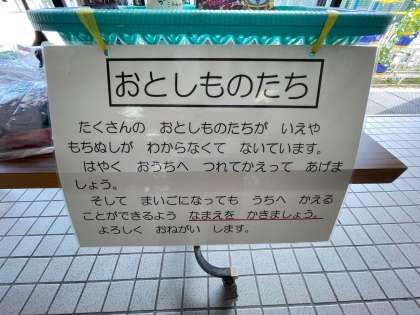 おとしものたち
たくさんの おとしものたちが いえや
もちぬしが わからなくて ないています。
はやく おうちへ つれてかえって あげま
しょう。
そして まいごになっても うちへ かえる
ことができるよう なまえを かきましょう。
よろしく おねがい します。